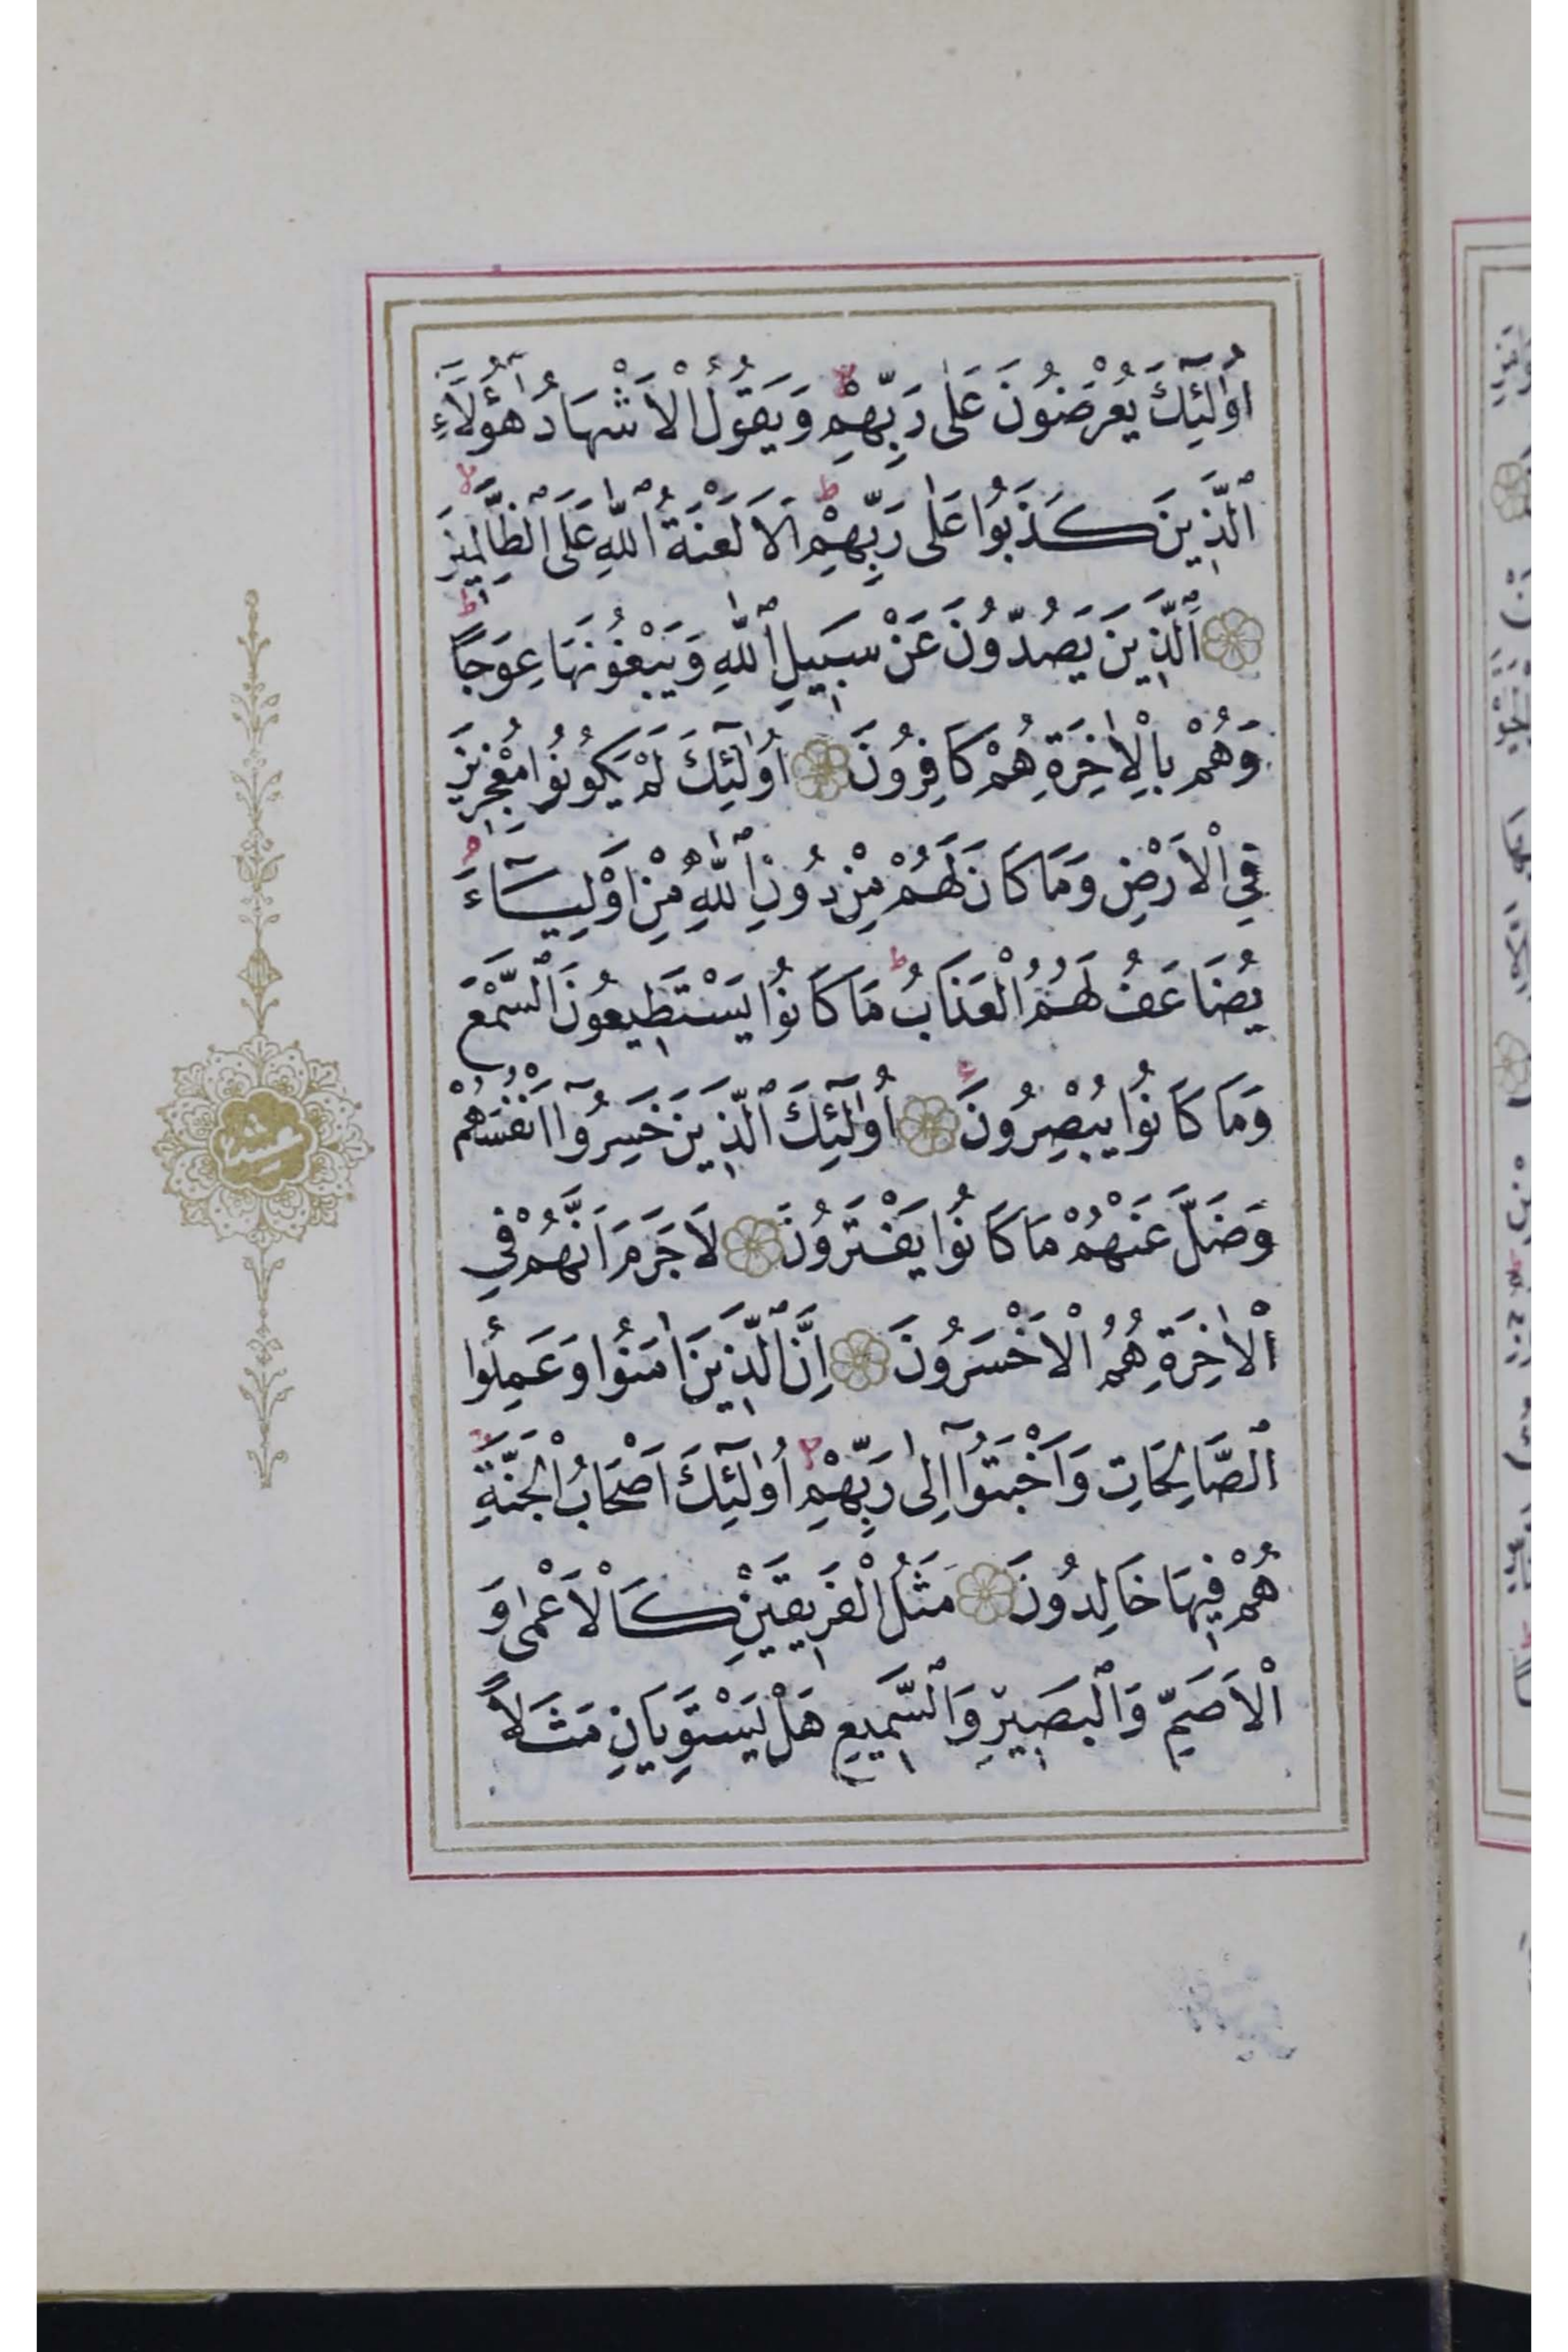 اُو۬لٰٓئِكَ يُعْرَضُونَ عَلٰى رَبِّهِمْ وَيَقُولُ الْاَشْهَادُ هٰٓؤُ۬لَٓاءِ
الَّذ۪ينَ كَذَبُوا عَلٰى رَبِّهِمْۚ اَلَا لَعْنَةُ اللّٰهِ عَلَى الظَّالِم۪ينَ
اَلَّذ۪ينَ يَصُدُّونَ عَنْ سَب۪يلِ اللّٰهِ وَيَبْغُونَهَا عِوَجًا
وَهُمْ بِالْاٰخِرَةِ هُمْ كَافِرُونَ اُو۬لٰٓئِكَ لَمْ يَكُونُوا مُعْجِز۪ينَ
فِي الْاَرْضِ وَمَا كَانَ لَهُمْ مِنْ دُونِ اللّٰهِ مِنْ اَوْلِيَٓاءَ
يُضَاعَفُ لَهُمُ الْعَذَابُ مَا كَانُوا يَسْتَط۪يعُونَ السَّمْعَ
وَمَا كَانُوا يُبْصِرُونَ اُو۬لٰٓئِكَ الَّذ۪ينَ خَسِرُٓوا اَنْفُسَهُمْ
وَضَلَّ عَنْهُمْ مَا كَانُوا يَفْتَرُونَ لَا جَرَمَ اَنَّهُمْ فِي
الْاٰخِرَةِ هُمُ الْاَخْسَرُونَ اِنَّ الَّذ۪ينَ اٰمَنُوا وَعَمِلُوا
الصَّالِحَاتِ وَاَخْبَتُٓوا اِلٰى رَبِّهِمْ اُو۬لٰٓئِكَ اَصْحَابُ الْجَنَّةِ
هُمْ ف۪يهَا خَالِدُونَ مَثَلُ الْفَر۪يقَيْنِ كَالْاَعْمٰى وَ
الْاَصَمِّ وَالْبَص۪يرِ وَالسَّم۪يعِ هَلْ يَسْتَوِيَانِ مَثَلًا